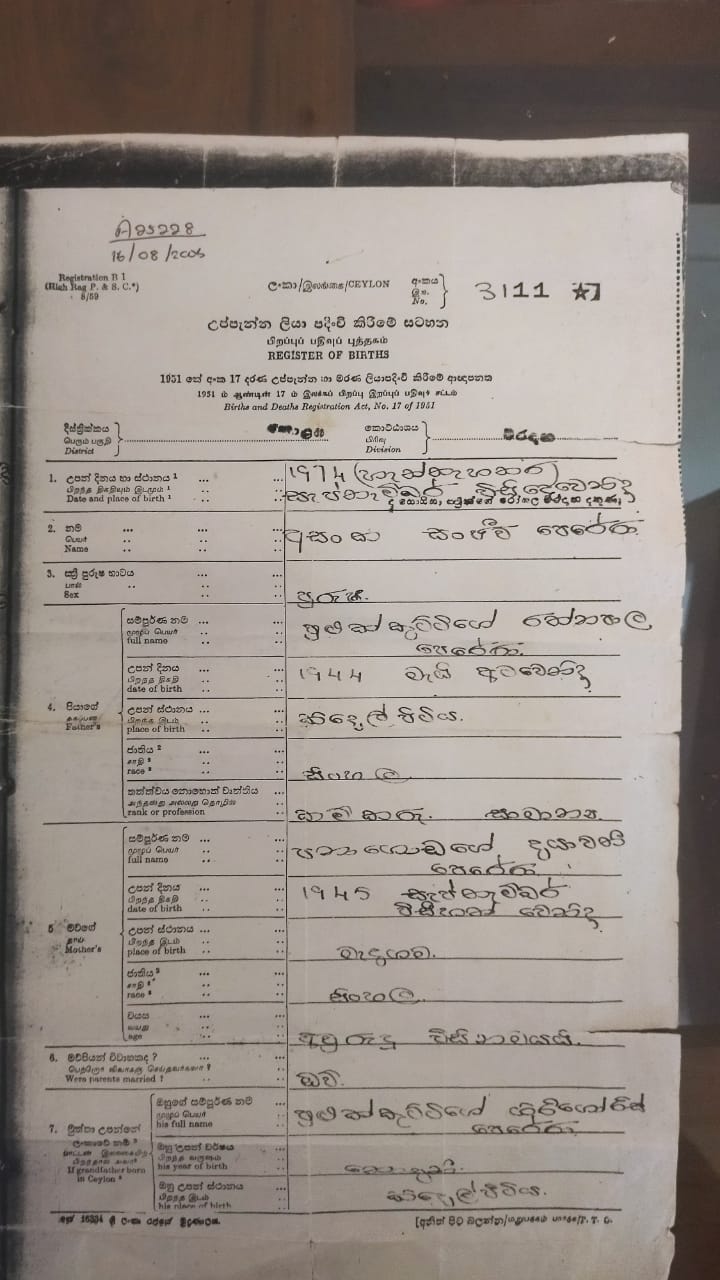 16/08/2005
Registration B 1
8/59
ලංකා/இலங்கை/CEYLON
අංකය
இல.
No.
3111
උප්පැන්න ලියා පදිංචි කිරීමේ සටහන
பிறப்புப் பதிவுப் புத்தகம்
REGISTER OF BIRTHS
1951 තේ අංක 17 දරණ උප්පැන්න හා මරණ ලියාපදිංචි කිරීමේ ආඥපනත
1951 ம் ஆண்டின் 17 ம் இலக்கப் பிறப்பு இறப்புப் பதிவுச் சட்டம்
Births and Deaths Registration Act, No. 17 of 1951
දිස්ත්‍රික්කය
பெரும் பகுதி
District
කොළඹ
කොට්ඨාශය
பிரிவு
Division
මරදාන
1. උපන් දිනය හා ස්ථානය 1
பிறந்த திகதியும் இடமும் 1
Date and place of birth 1
1974 (හැත්තෑහතර)
සැප්තැම්බර් විසි දෙවෙනිදා
2. නම
பெயர்
Name
අසංකා සංජීව පෙරේරා
3. ස්ත්‍රී පුරුෂ භාවය
பால்
Sex
පුරුෂ.
4. පියාගේ
தகப்பன
Father's
සම්පූර්ණ නම
முழுப் பெயர்
full name
පෙරේරා.
උපන් දිනය
பிறந்த திகதி
date of birth
1944 මැයි අටවෙනිදා
උපන් ස්ථානය
பிறந்த இடம்
place of birth
ජාතිය 2
சாதி 2
race 2
සිංහල
තත්ත්වය නොහොත් වෘත්තිය
அந்தஸ்து அல்லது தொழில்
rank or profession
කම්කරු. සාමාන්‍ය.
5 මවගේ
தாய்
Mother's
සම්පූර්ණ නම
முழுப் பெயர்
full name
දයාවතී
පෙරේරා
උපන් දිනය
பிறந்த திகதி
date of birth
1945 සැප්තැම්බර්
උපන් ස්ථානය
பிறந்த இடம்
place of birth
මැදගම.
ජාතිය 2
சாதி 2
race 2
සිංහල.
වයස
வயது
age
අවුරුදු විසි නවයයි.
6. මව්පියන් විවාහකද ?
பெற்றோர் விவாகஞ் செய்தவர்களா ?
Were parents married ?
ඔව්.
7. මුත්තා උපන්නේ
ලංකාවේ නම් 3
If grandfather born
in Ceylon 3
ඔහුගේ සම්පූර්ණ නම
முழுப் பெயர்
his full name
පෙරේරා
ඔහු උපන් වර්ෂය
பிறந்த வருஷம்
his year of birth
නොදනී.
ඔහු උපන් ස්ථානය
பிறந்த இடம்
his place of birth